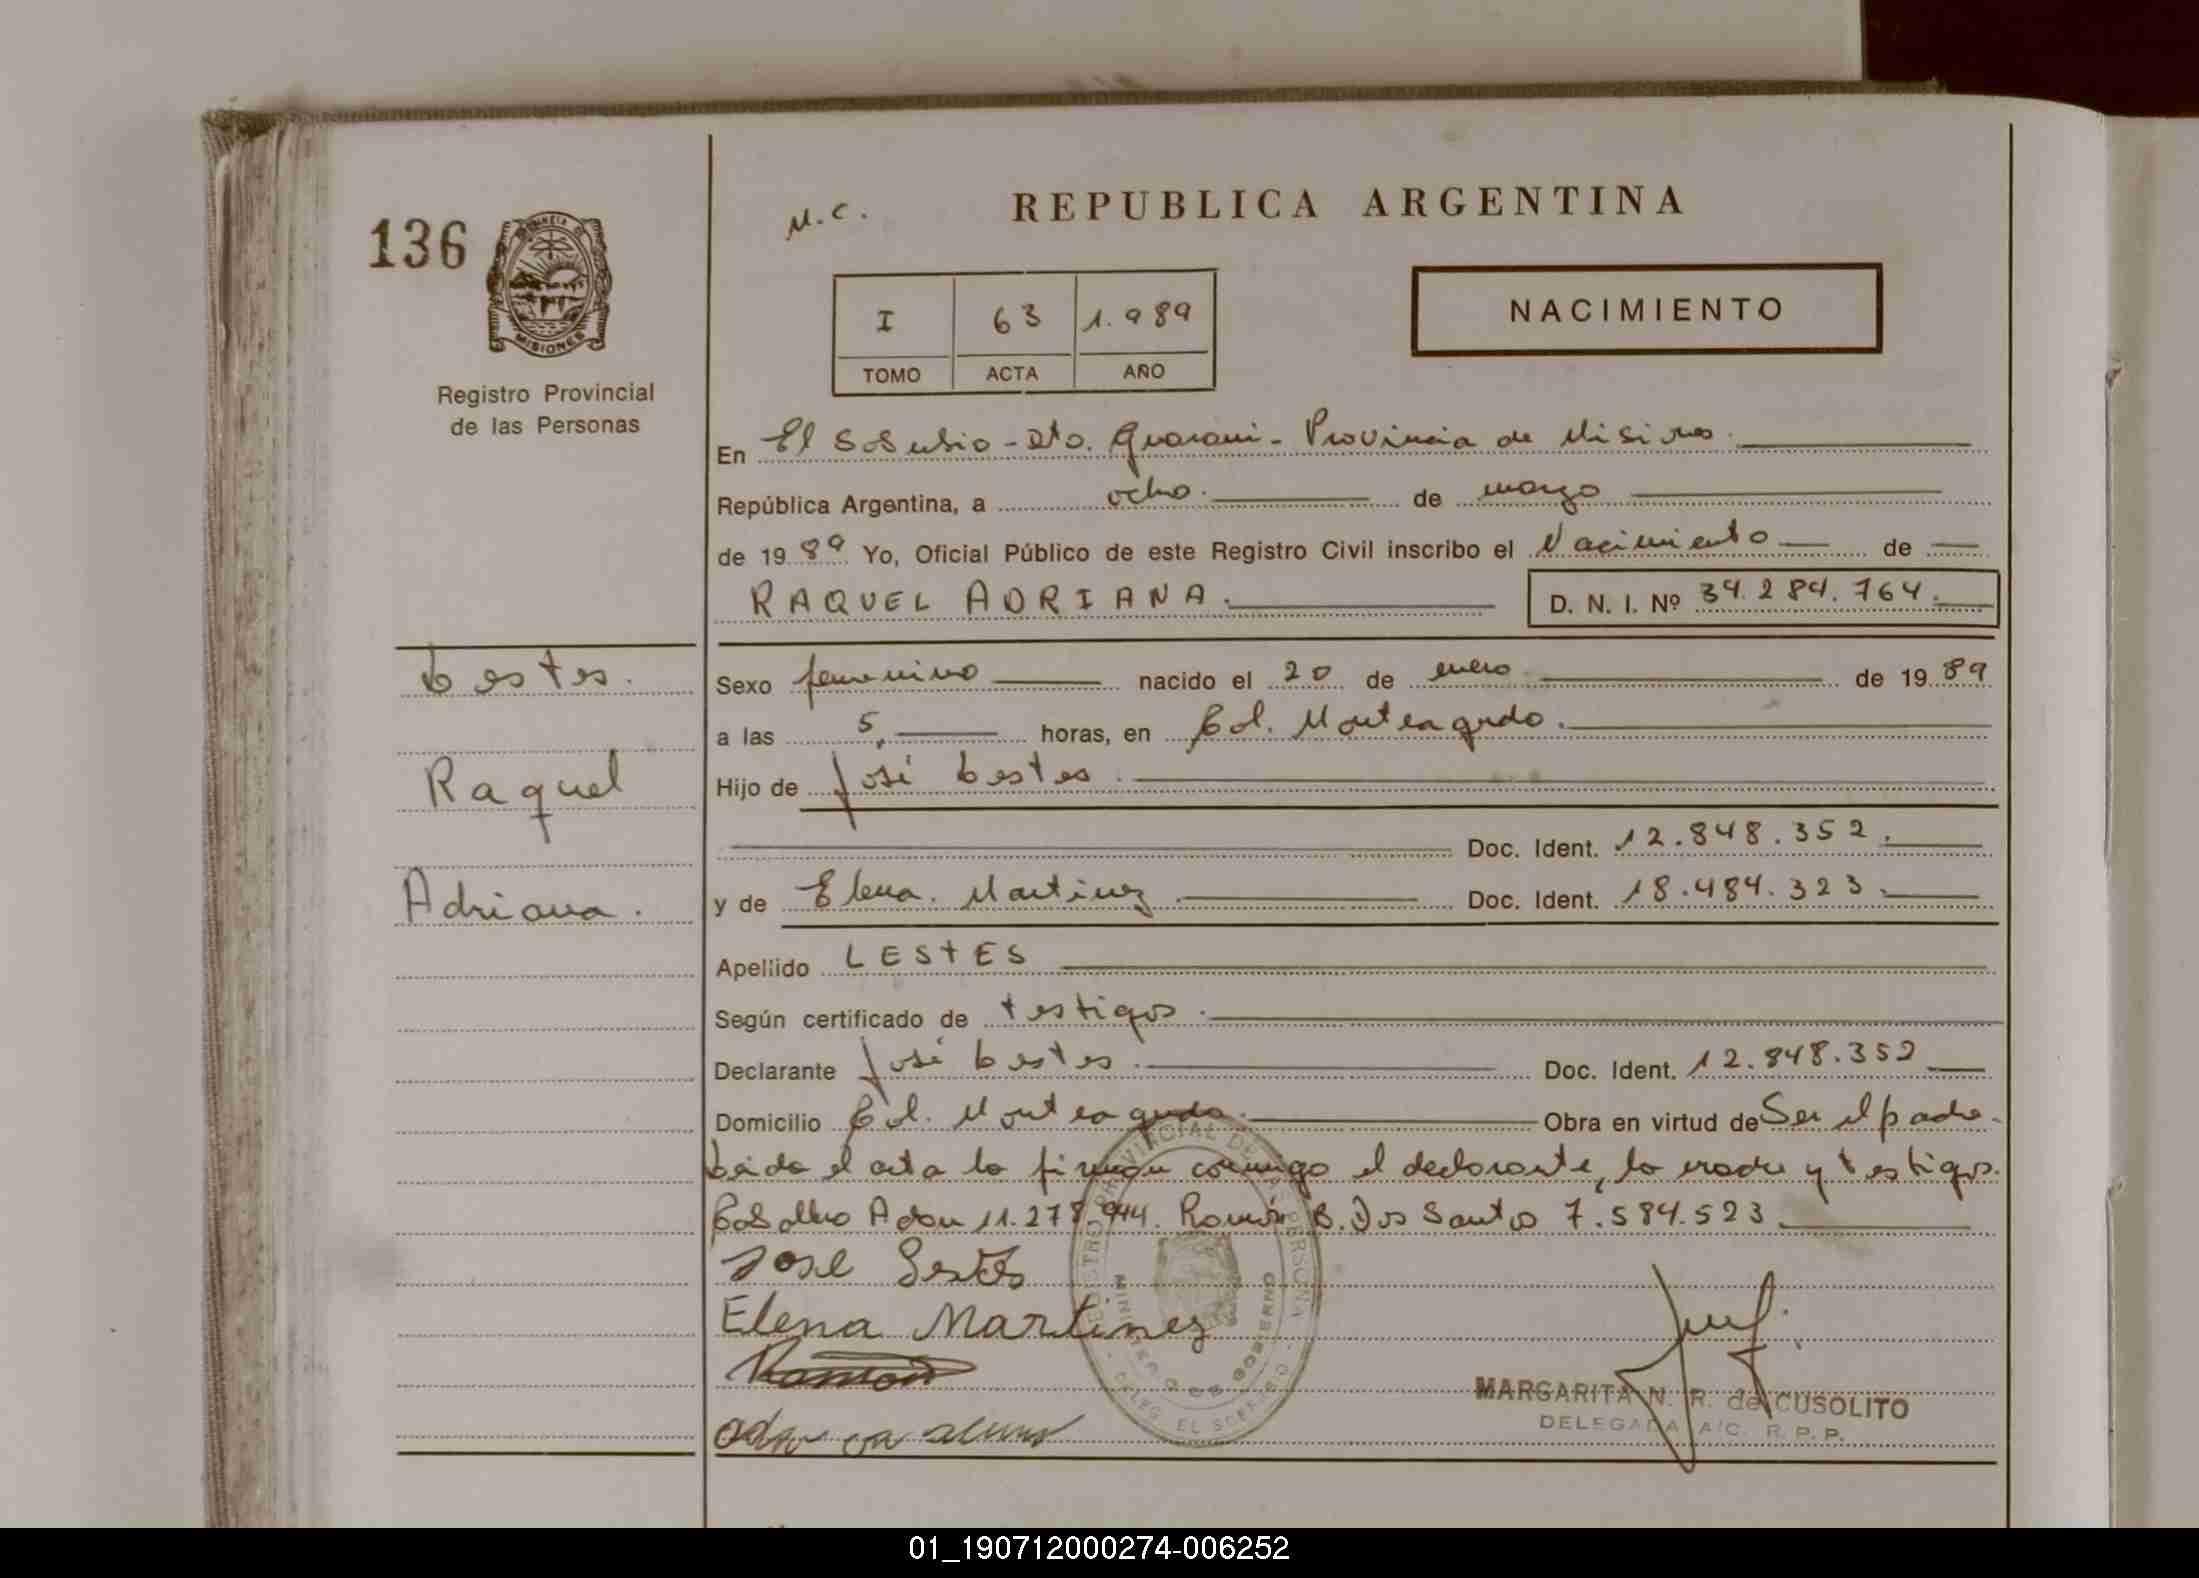 136
Registro Provincial
de las Personas
M.C.
REPUBLICA ARGENTINA
I 63 1.989
TOMO ACTA AÑO
NACIMIENTO
En El Soberbio - Dto. Guarani - Provincia de Misiones.
República Argentina, a ocho. de marzo
de 1989 Yo, Oficial Público de este Registro Civil inscribo el Nacimiento de
RAQUEL ADRIANA. D. N. I. Nº 34.284.764.
Lestes.
Raquel
Adriana.
Sexo femenino nacido el 20 de enero de 1989
a las 5, horas, en Col. Monteagudo.
Hijo de José Lestes.
Doc. Ident. 12.848.352.
y de Elena Martinez Doc. Ident. 18.484.323.
Apellido LESTES
Según certificado de testigos.
Declarante José Lestes. Doc. Ident. 12.848.352
Domicilio Col. Monteagudo. Obra en virtud de Ser el padre.
Leida el acta la firman conmigo el declarante, la madre y testigos.
Adan 11.278.944. Ramón B. Dos Santos 7.584.523
Jose Lestes
Elena Martines
Ramon
MARGARITA N. R. de CUSOLITO
DELEGADA A/C. R. P. P.
REGISTRO PROVINCIAL DE LAS PERSONAS
MINISTERIO DE GOBIERNO
DELEG. EL SOBERBIO
01_190712000274-006252